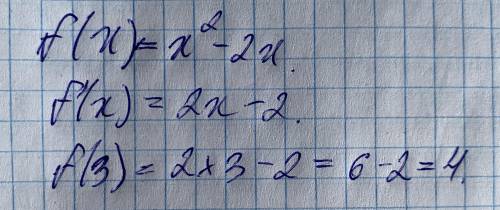 f(x) = x² - 2x.
f'(x) = 2x - 2.
f(3) = 2 × 3 - 2 = 6 - 2 = 4.